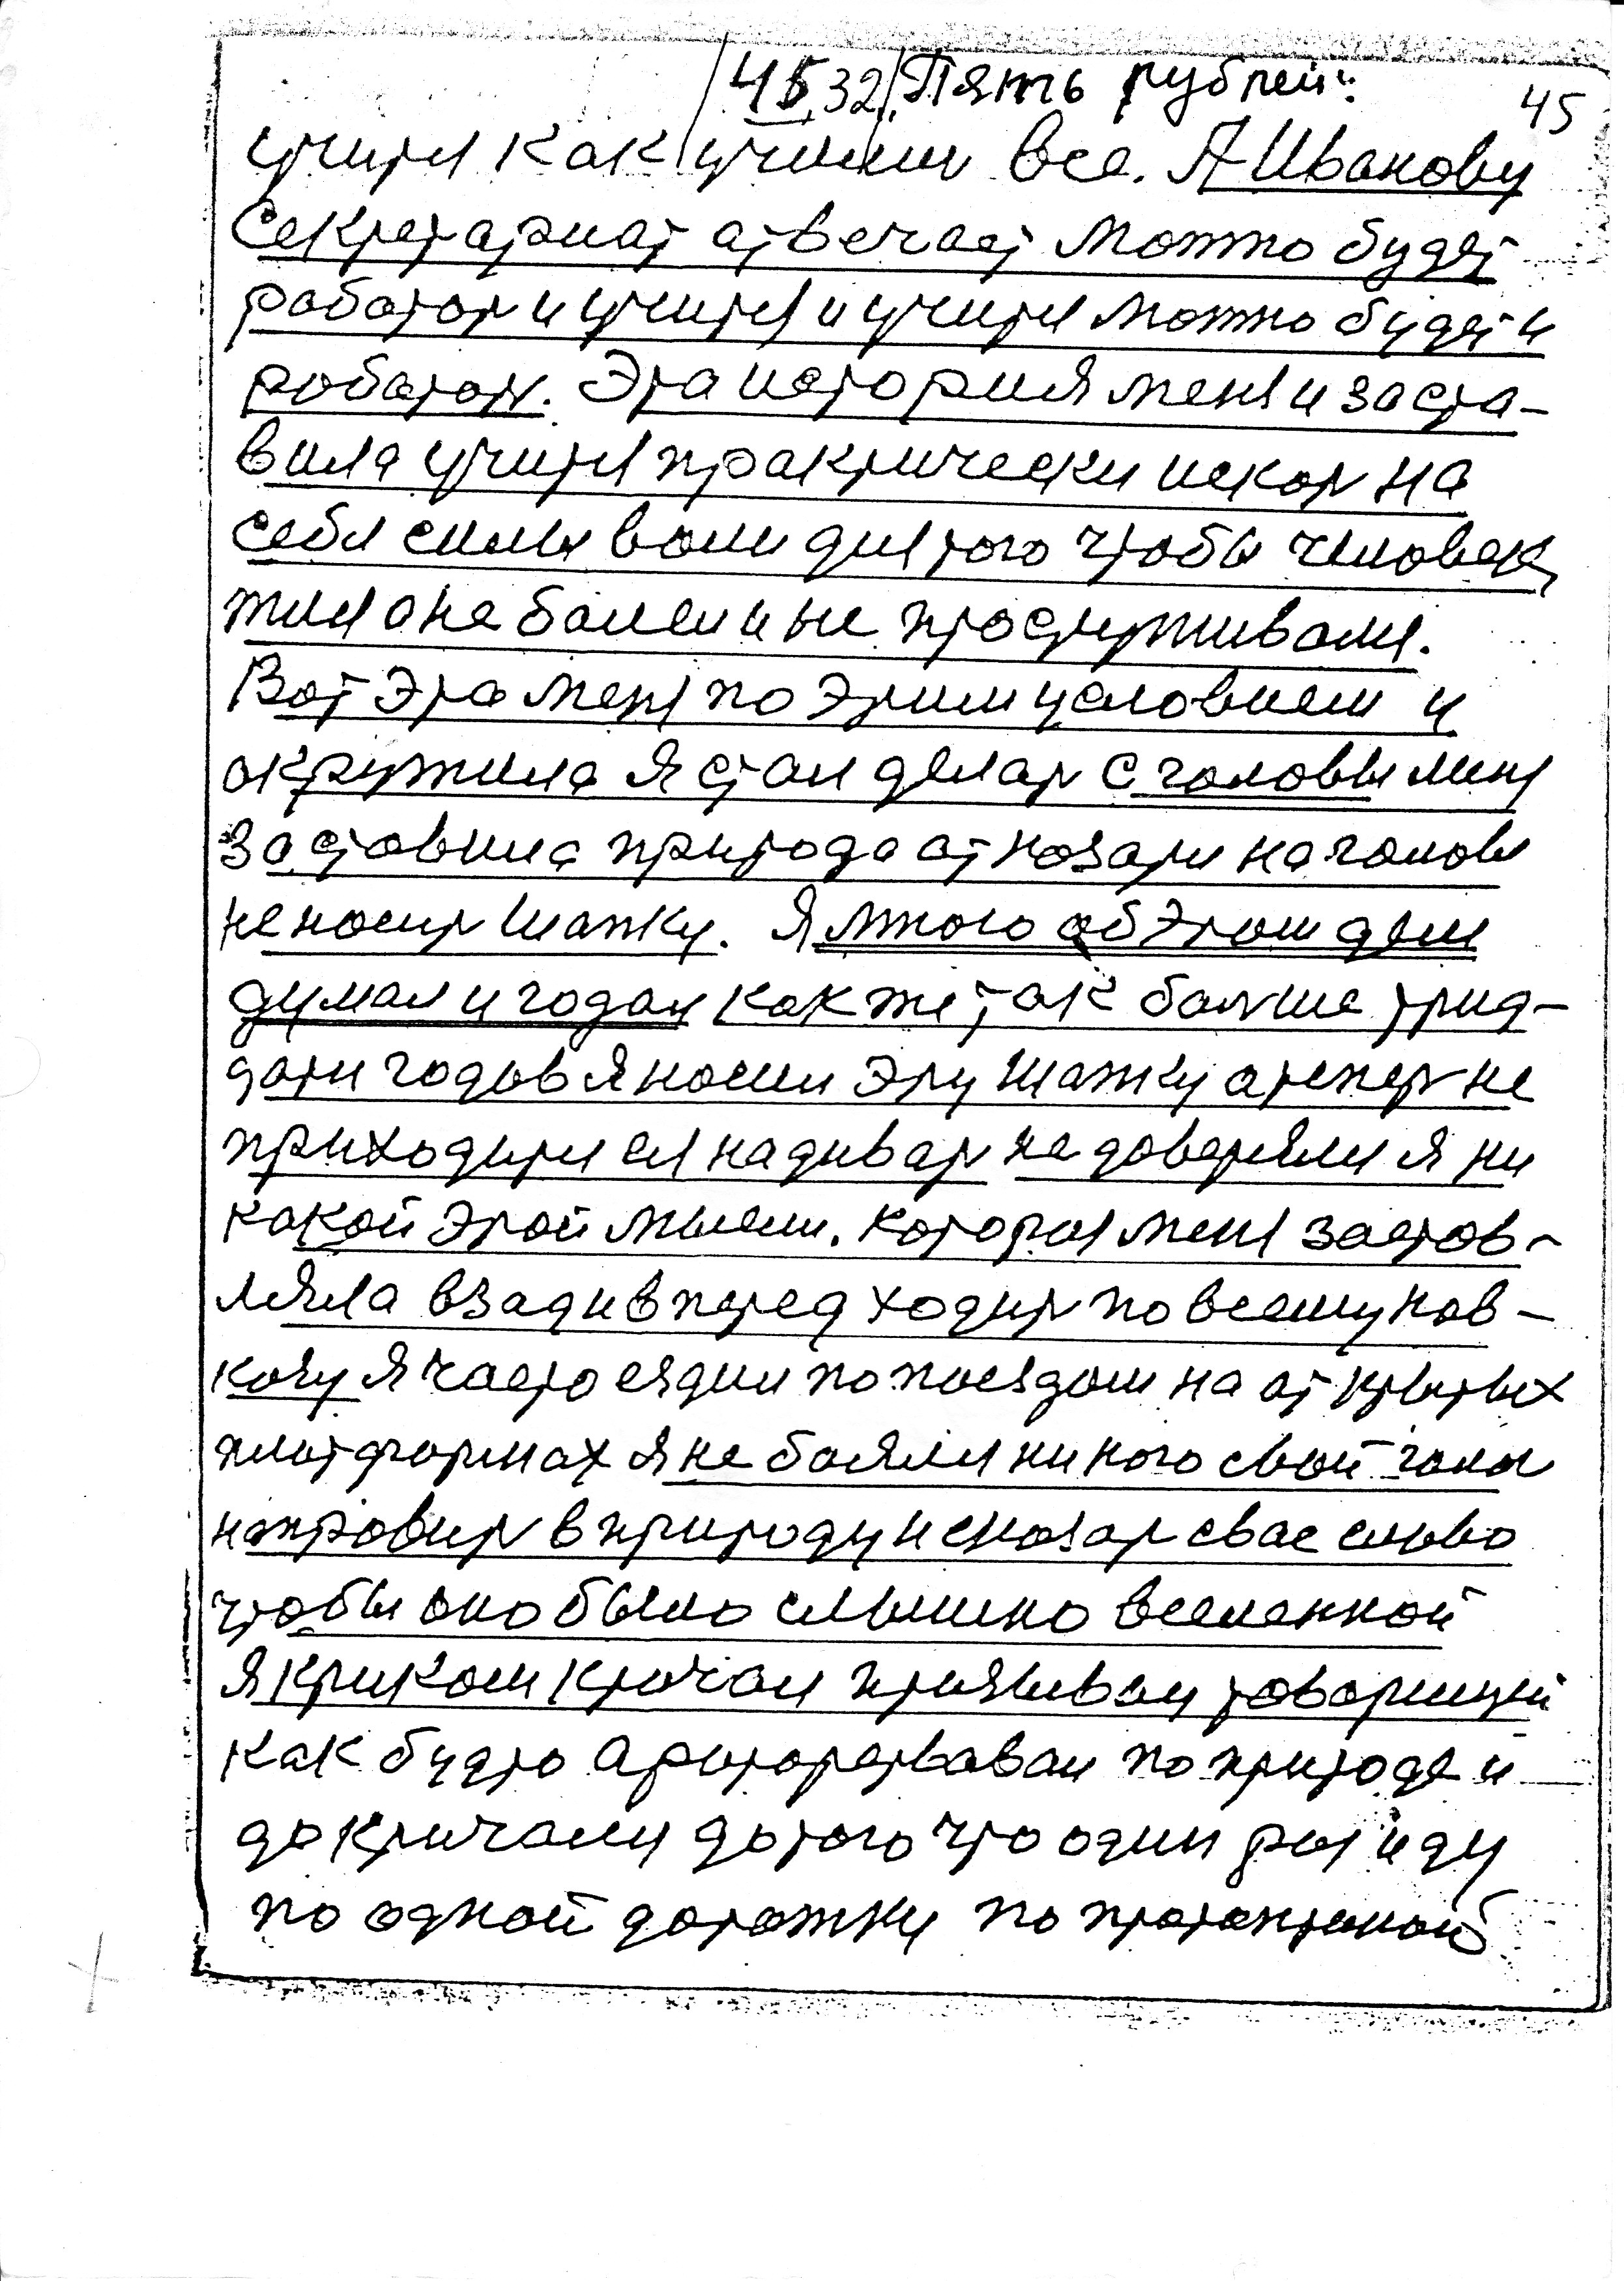 45.32 „Пять рублей".
45
учитя как учили все. А Иванову
Секретариат атвечает можно будет
работать и учитя и учитя можно будет и
работать. Эта история меня и заста-
вила учитя практически искать на
себя силы воли для того чтобы человек
жил а не болел и не простуживался.
Вот эта меня по этим условием и
акружила я стал делать с головы меня
заставила природа атказатя на головы
не носить шапку. Я много об этом деле
думал и годал как же так больше трид-
цати годов я носил эту шапку а теперь не
приходится ея надивать не доверялся я ни
какой этой мысли. которая меня застов-
ляла взад и вперед ходить по всему кав-
казу я часто ездил по поездам на аткрытых
платформах я не боялся никого свой голос
направить в природу и сказать свае слово
чтобы оно было слышно вселенной
я криком кричал призывал товарищей
как будто аратороствовал по природе и
докричался до того что один раз иду
по одной дорожки по